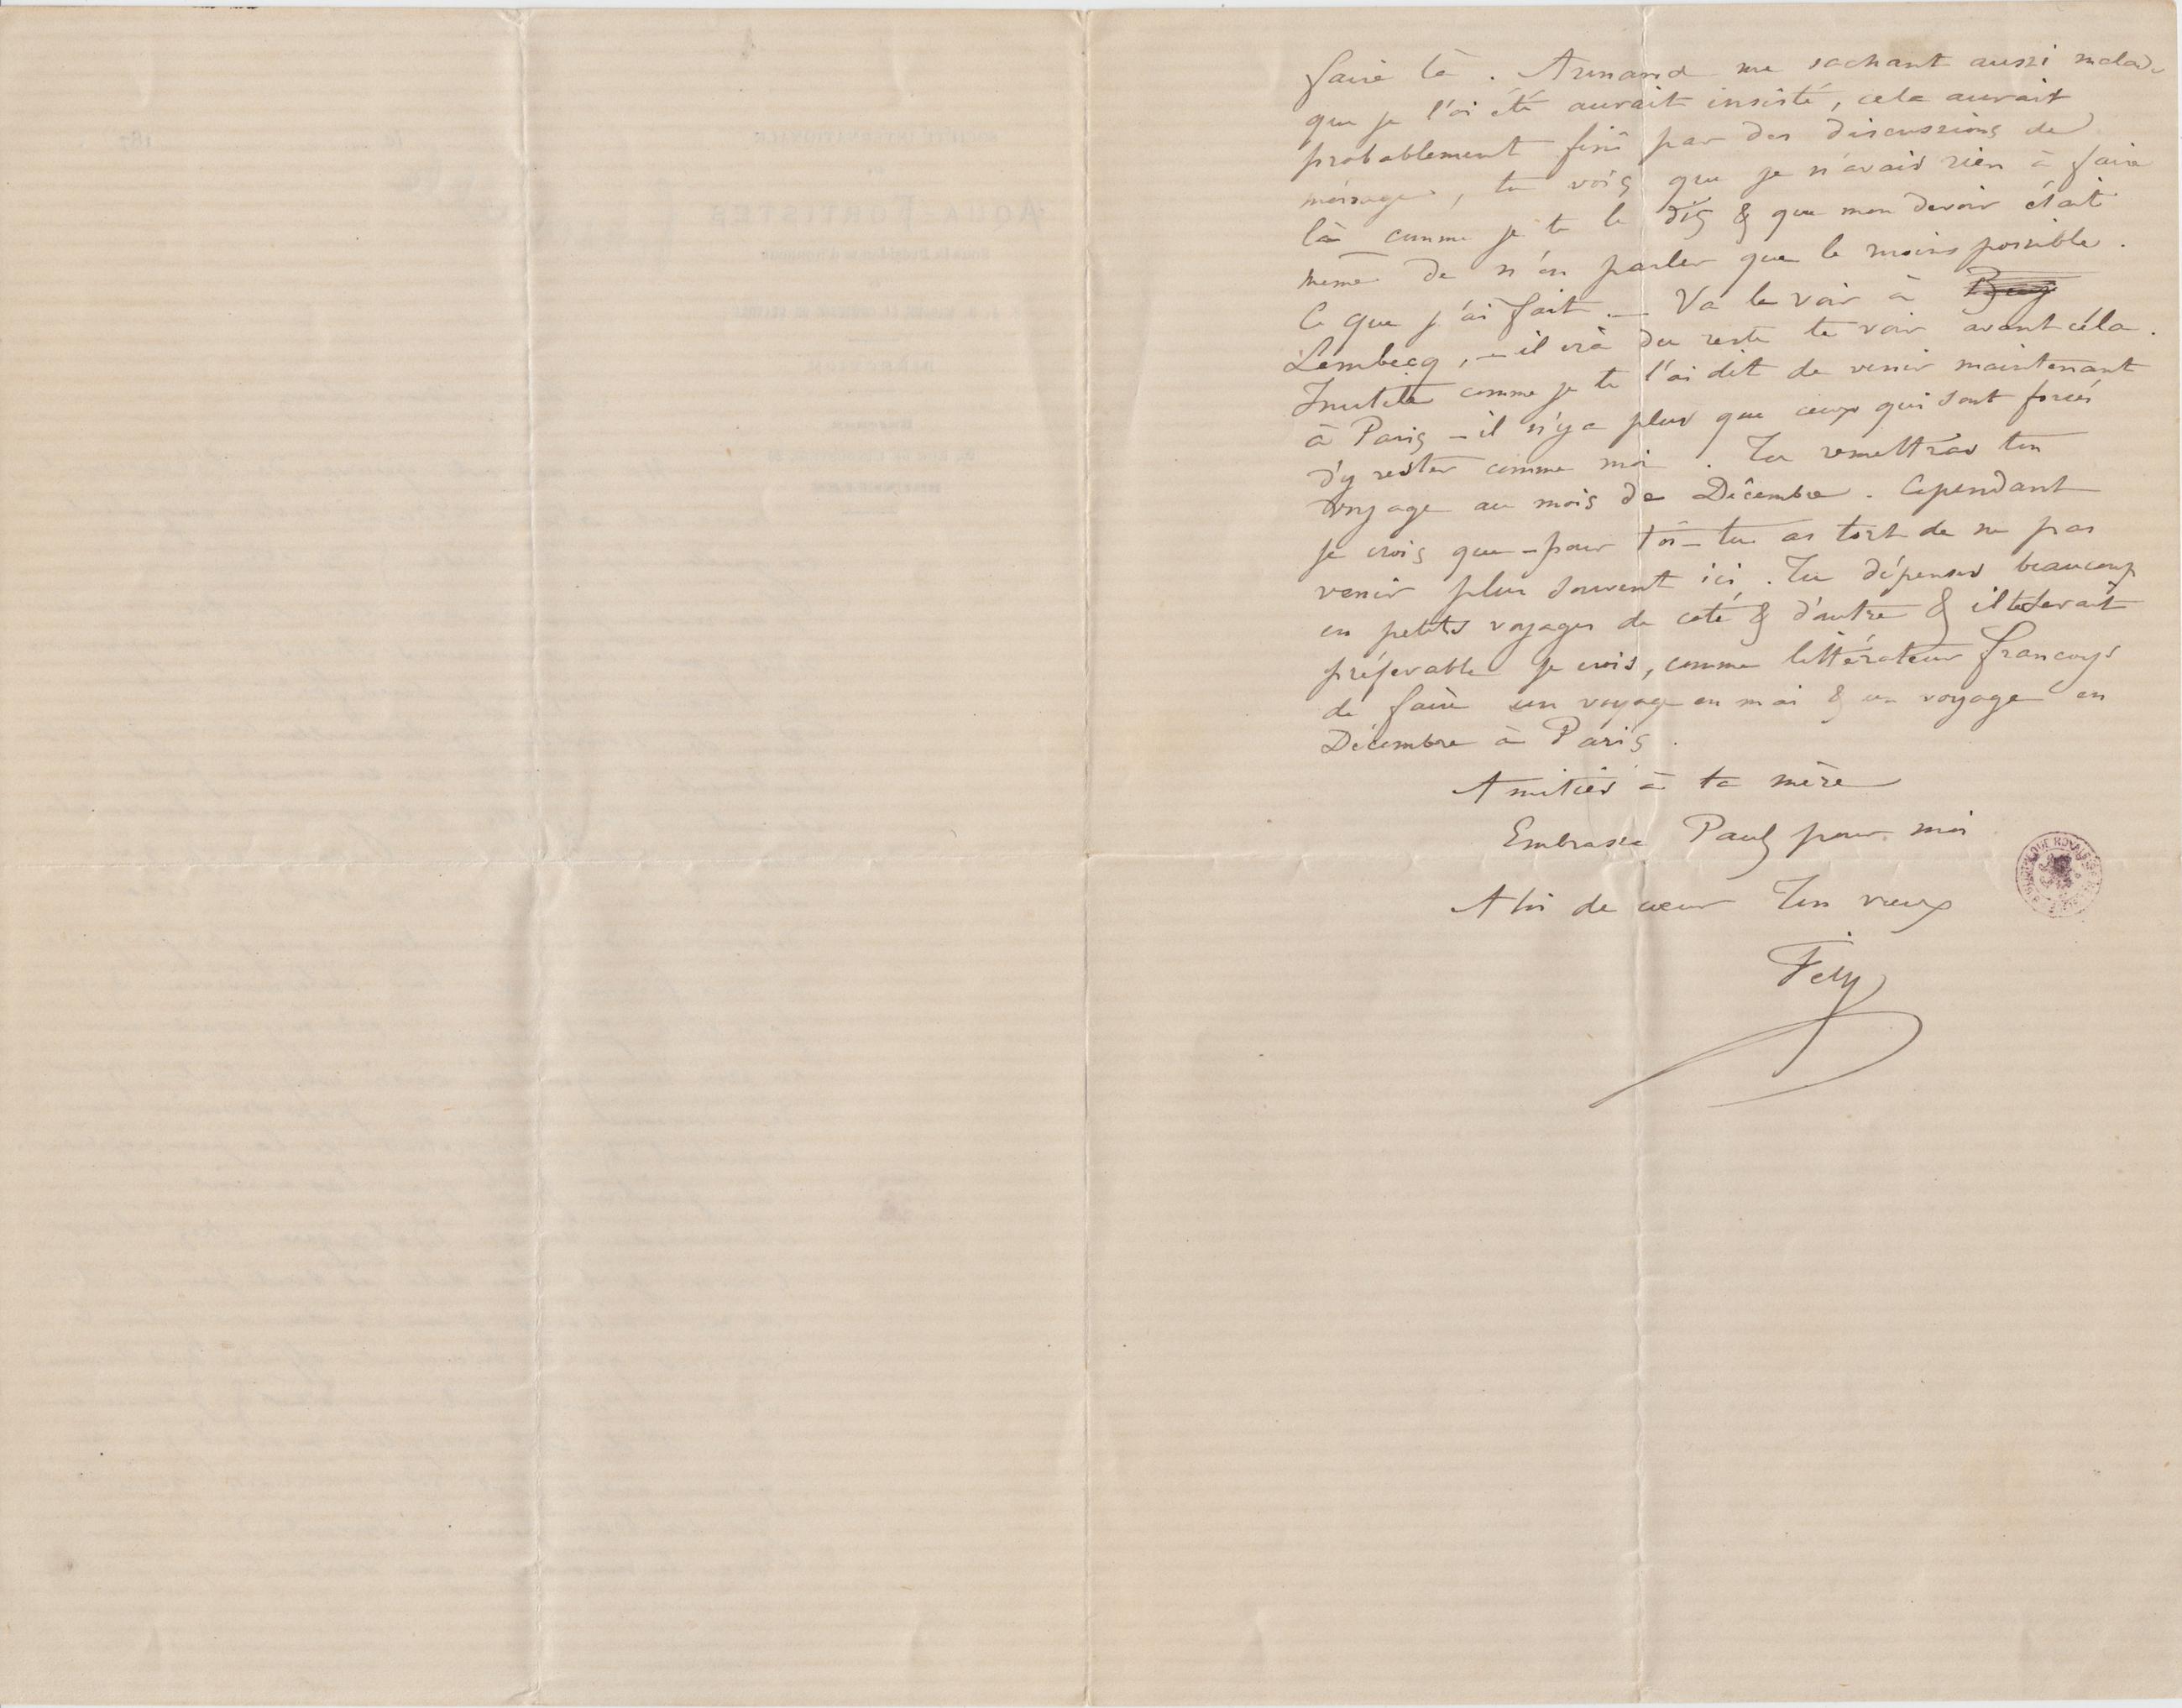 faire là. Armand me sachant aussi malade
que je l'ai été aurait insisté, cela aurait
probablement fini par des discussions de
ménage, tu vois que je n'avais rien à faire
là comme je te le dis & que mon devoir était
même de n'en parler que le moins possible.
Ce que j'ai fait. — Va le voir à
Lembecq, — il ira du reste te voir avant céla.
Inutile comme je te l'ai dit de venir maintenant
à Paris — il n'y a plus que ceux qui sont forcés
d'y rester comme moi. Tu remettras ton
voyage au mois de Décembre. Cependant
je crois que — pour toi — tu as tort de ne pas
venir plus souvent ici. Tu dépenses beaucoup
en petits voyages de coté & d'autre & il te serait
préférable je crois, comme littérateur françays
de faire un voyage en mai & un voyage en
Décembre à Paris.
Amitiés à ta mère
Embrasse Paul pour moi
A toi de cœur Ton vieux
Fély